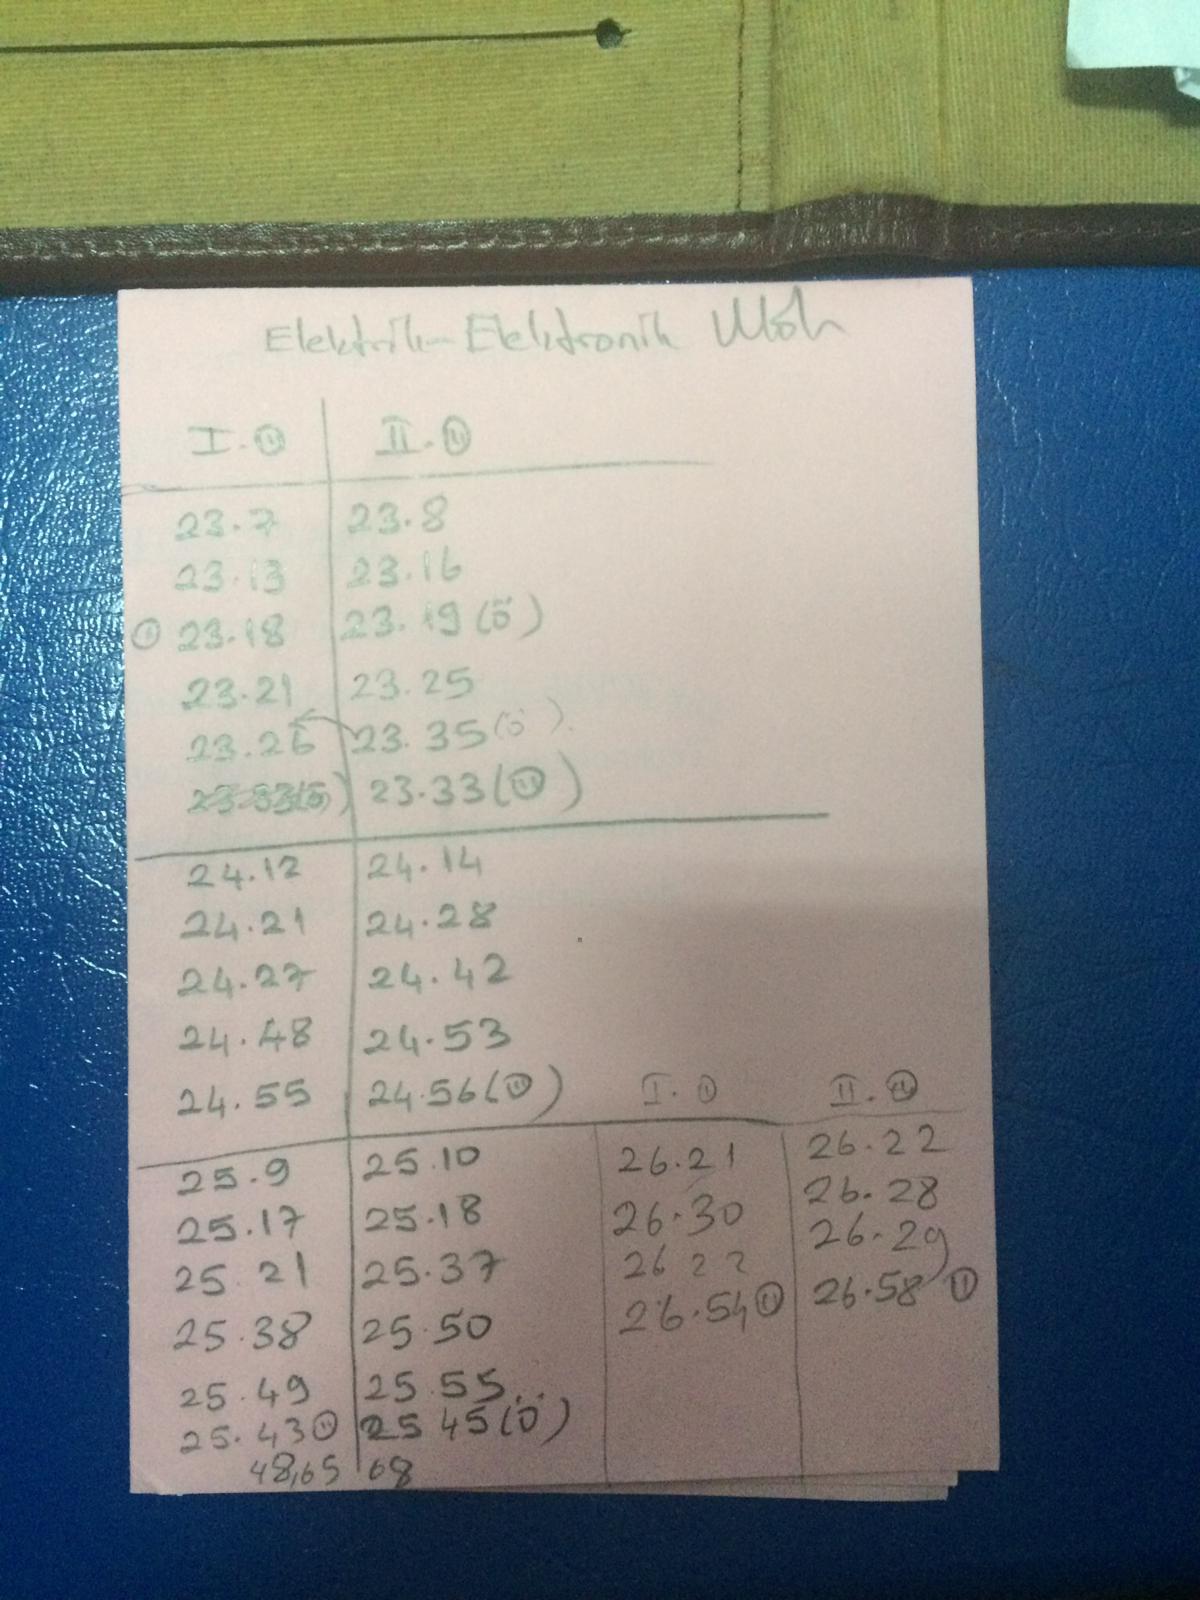 Elektrik-Elektronik Müh
I. Ü II. Ü
23.7 23.8
23.13 23.16
23.18 23.19 (ö)
23.21 23.25
23.26 23.35 (ö)
23.33(ö) 23.33 (Ü)
24.12 24.14
24.21 24.28
24.27 24.42
24.48 24.53
24.55 24.56 (Ü)
25.9 25.10
25.17 25.18
25.21 25.37
25.38 25.50
25.49 25.55
25.43 Ü 25 45 (Ö)
48,65 68
I. Ü II. Ü
26.21 26.22
26.30 26.28
26 22 26.29
26.54 Ü 26.58 Ü